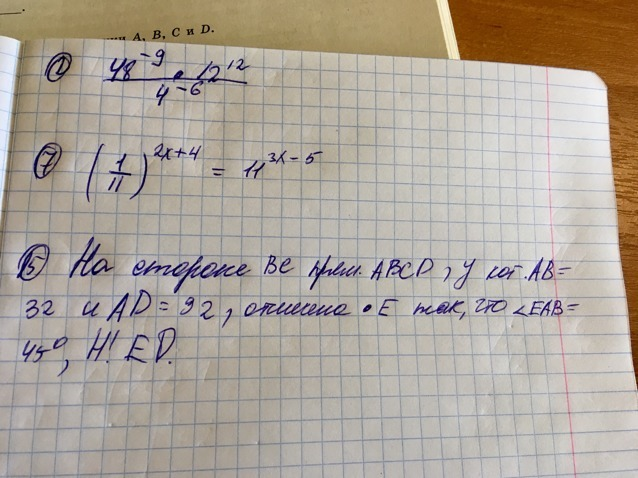 и A, B, C и D.
① 48^-9 · 12^12 / 4^-6
⑦ (1/11)^2x+4 = 11^3x-5
⑮ На стороне BC прям. ABCD, у кот. AB=
32 и AD = 92, отмечена • E так, что ∠EAB=
45°, Н! ED.